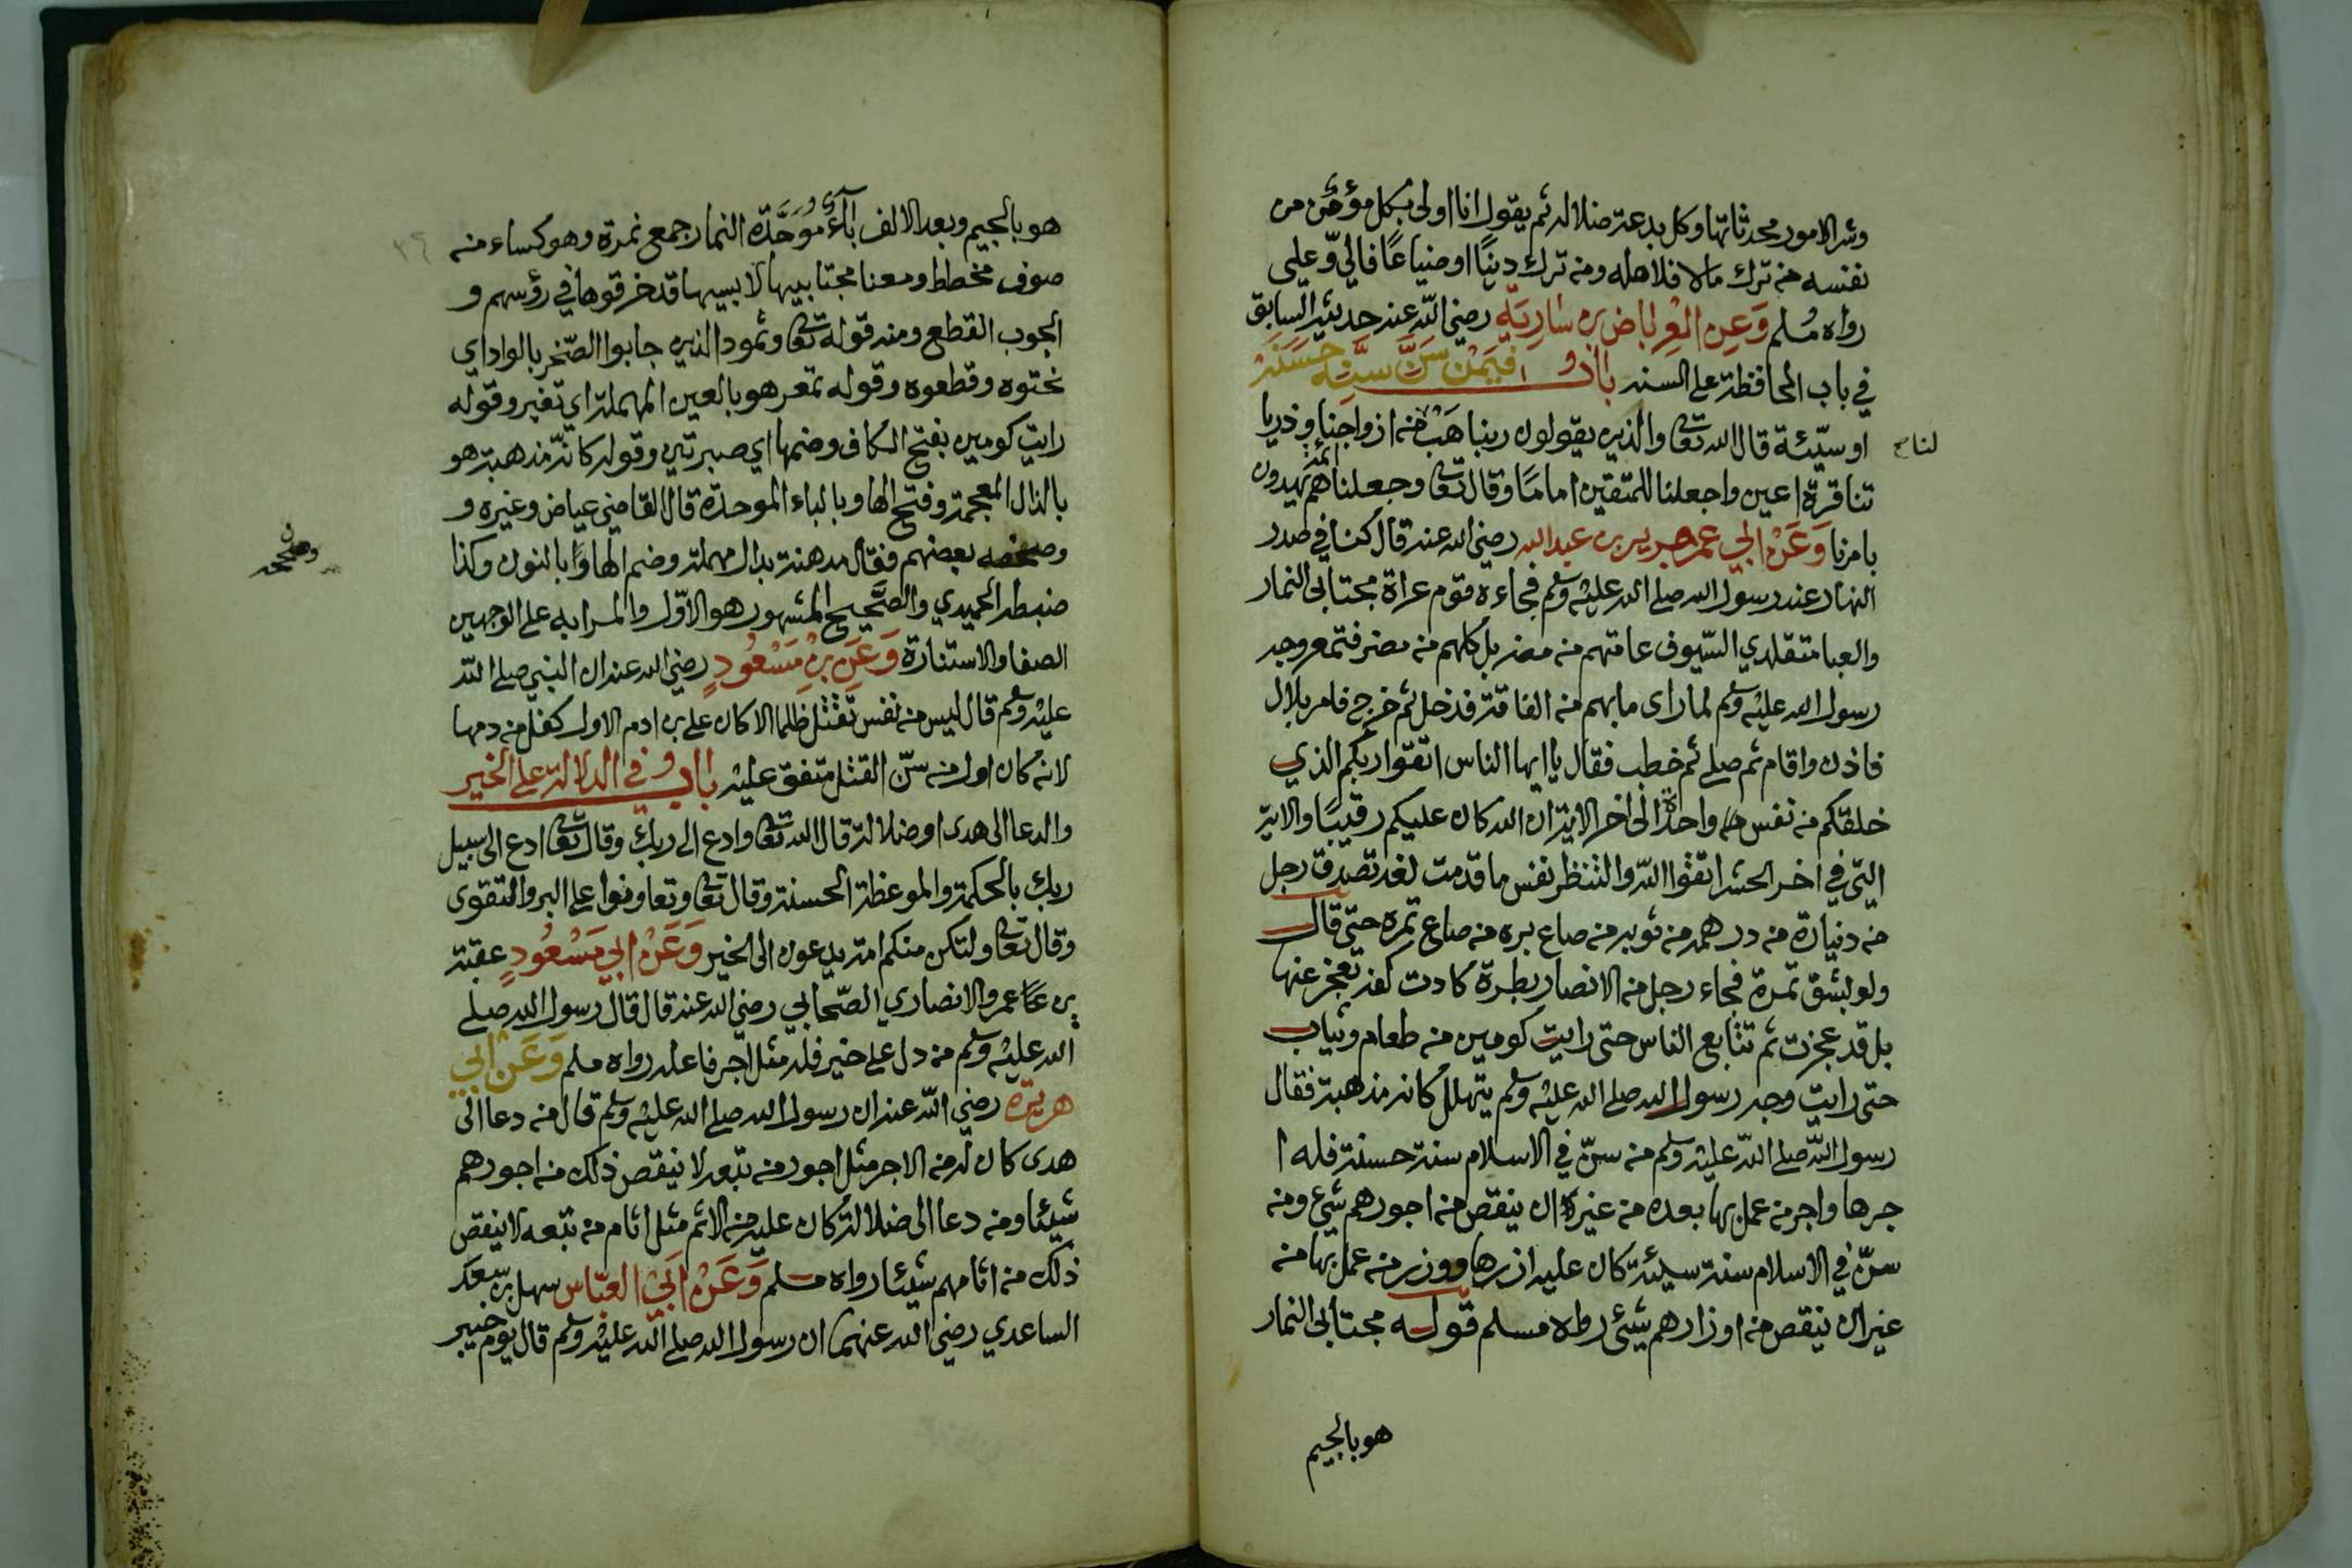 وشر الامور محدثاتها وكل بدعة ضلالة ثم يقول انا اولى بكل مؤمن من
نفسه من ترك مالا فلاهله ومن ترك دينًا او ضياعًا فالي وعلي
رواه مسلم وَعَنِ العِرباض بن سَارِيَة رضي الله عنه حديثه السابق
في باب المحافظة على السنة باب فيمن سَنَّ سنة حسنة
او سيّئة قال الله تعالى والذين يقولون ربنا هب من ازواجنا وذريا
لنا
تنا قرة اعين واجعلنا للمتقين امامًا وقال تعالى وجعلناهم ائمة يهدون
بامرنا وَعَنْ ابي عمر جرير بن عبد الله رضي الله عنه قال كنا في صدر
النهار عند رسول الله صلى الله عليه وسلم فجاءه قوم عراة مجتابى النمار
والعبا متقلدي السّيوف عامتهم من مضر بل كلهم من مضر فتمعر وجه
رسول الله عليه وسلم لما راى ما بهم من الفاقة فدخل ثم خرج فامر بلال
فاذن واقام ثم صلى ثم خطب فقال يا ايها الناس اتقوا ربكم الذي
خلقكم من نفس واحدة الى اخر الاية ان الله كان عليكم رقيبًا والاية
التي في اخر الحشر اتقوا الله والتنظر نفس ما قدمت لغد تصدق رجل
من دنياره من درهمه من ثوبه من صاع بره من صاع تمره حتى قال
ولو بشق تمرة فجاء رجل من الانصار بطرة كادت كفه تعجز عنها
بل قد عجزت ثم تتابع الناس حتى رايت كومين من طعام وثياب
حتى رايت وجه رسول الله صلى الله عليه وسلم يتهلل كانه مذهبة فقال
رسول الله صلى الله عليه وسلم من سنّ في الاسلام سنة حسنة فله ا
جرها واجر من عمل بها بعده من غيره ان ينقص من اجورهم شيء ومن
سنّ في الاسلام سنة سيئة كان عليه ازرها ووزر من عمل بها من
غير ان ينقص من اوزارهم شيئى رواه مسلم قوله مجتابى النمار
هو بالجيم
هو بالجيم وبعد الالف بآءٌ مُوَحَّدَة النمار جمع نمرة وهو كساء من
صوف مخطط ومعنا مجتابيها لابسيها قد خرقوها في رؤسهم و
الجوب القطع ومنه قوله تعالى وثمود الذين جابوا الصّخر بالواد اي
نحتوه وقطعوه وقوله تمعر هو بالعين المهملة اي تغير وقوله
رايت كومين بفتح الكاف وضمها اي صبرتين وقوله كانّه مذهبة هو
بالذال المعجمة وفتح الها وبالباء الموحدة قال القاضي عياض وغيره و
وصحفه بعضهم فقال مدهنة بدال مهملة وضم الها وبالنون وكذا
ضبطه الحميدي والصَّحيح المشهور هو الاوّل والمراد به على الوجهين
الصفا والاستنارة وَعَنِ بنِ مَسْعُودٍ رضي الله عنه ان النبي صلى الله
عليه وسلم قال ليس من نفس تقتل ظلما الا كان على بن ادم الاول كفل من دمها
لانه كان اول من سنّ القتل متفق عليه باب في الدلالة على الخير
والدعا الى هدى او ضلالة قال الله تعالى وادع الى ربك وقال تعالى ادع الى سبيل
ربك بالحكمة والموعظة الحسنة وقال تعالى وتعاونوا على البر والتقوى
وقال تعالى ولتكن منكم امة يدعون الى الخير وَعَنْ ابي مَسْعُودٍ عقبة
بن عمرو الانصاري الصّحابي رضي الله عنه قال قال رسول الله صلى
الله عليه وسلم من دل على خير فله مثل اجر فاعله رواه مسلم وَعَنْ ابي
هريرة رضي الله عنه ان رسول الله صلى الله عليه وسلم قال من دعا الى
هدى كان له من الاجر مثل اجور من تبعه لا ينقص ذلك من اجورهم
شيئا ومن دعا الى ضلالة كان عليه من الاثم مثل اثام من تبعه لا ينقص
ذلك من اثامهم شيئا رواه مسلم وَعَنْ ابي العبّاس سهل بن سعد
الساعدي رضي الله عنهما ان رسول الله صلى الله عليه وسلم قال يوم خيبر